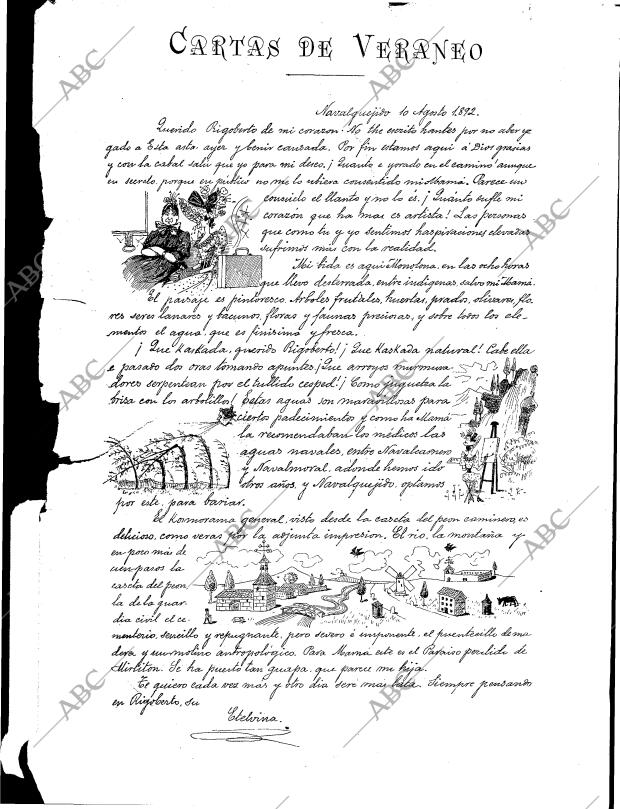 CARTAS DE VERANEO
Navalquejido 10 Agosto 1892.
Querido Rigoberto de mi corazon: No the escrito hantes por no aber ye
gado a Esta asta ayer y benir cansada. Por fin estamos aqui á Dios grasias
y con la cabal salu que yo para mi deseo. ¡Cuanto e yorado en el camino aunque
en secreto, porque en publico no me lo ubiera consentido mi Mamá. Parece un
consuelo el llanto y no lo es. ¡Cuanto sufre mi
corazón que ha mas es artista! Las personas
que como tu y yo sentimos haspiraciones elevadas
sufrimos mas con la realidad.
Mi bida es aqui Monotona, en las ocho horas
que llevo desterrada, entre indigenas, salvo mi Mamá.
El paisaje es pintoresco. Arboles frutales, huertas, prados, olivares, flo
res seres lanares y bacunos, floras y faunas preciosas, y sobre todos los ele-
mentos el agua, que es finisima y fresca.
¡Que Kaskada, querido Rigoberto! ¡Que Kaskada natural! Cabe ella
e pasado dos oras tomando apuntes ¡Que arroyos murmura
dores serpentean por el tullido cesped! ¡Como juguetea la
brisa con los arbolillos! Estas aguas son maravillosas para
ciertos padecimientos y como ha Mamá
la recomendaban los médicos las
aguas navales, entre Navalcarnero
y Navalmoral, adonde hemos ido
otros años, y Navalquejido, optamos
por este, para bariar.
El Kosmorama general, visto desde la caseta del peon caminero, es
delicioso, como veras por la adjunta impresion. El rio, la montaña y
en poco más de
cien pasos la
caseta del peon
la de la guar-
dia civil el ce-
menterio, sencillo y repugnante, pero severo é imponente, el puentecillo de ma
dera y un molino antropológico. Para Mamá este es el Paraiso perdido de
Mirliton. Se ha puesto tan guapa, que parece mi hija.
Te quiero cada vez mas y otro dia seré mas lata. Siempre pensando
en Rigoberto, su
Etelvina.
ABC
ABC
ABC
ABC
ABC
ABC
ABC
ABC
ABC
ABC
ABC
ABC